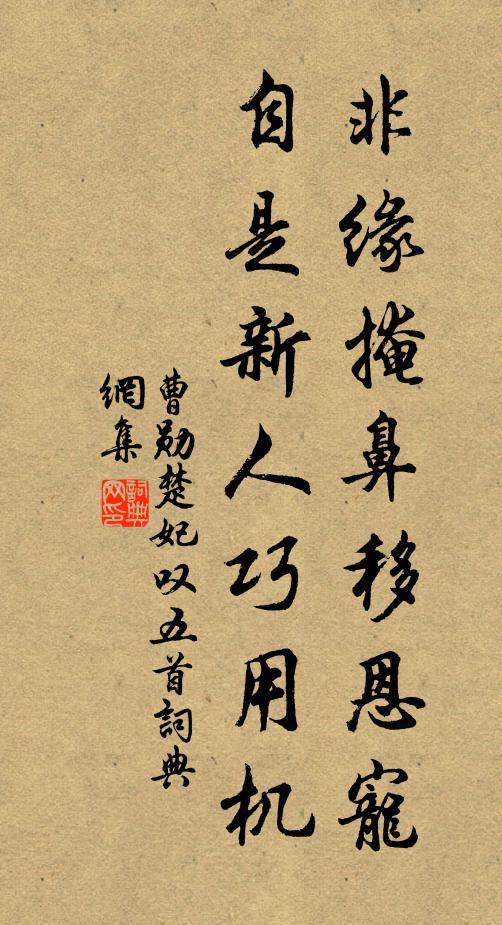 非缘掩鼻移恩寵
自是新人巧用机
曹勋楚妃叹五首詞典
網集
詞典
网印